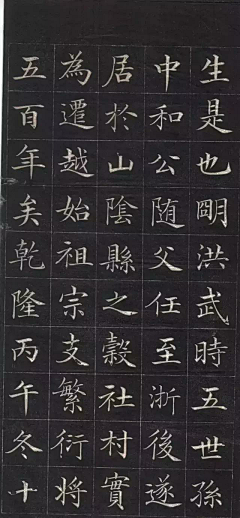 生是也明洪武時五世孫
中和公随父任至浙後遂
居於山陰縣之穀社村實
為遷越始祖宗支繁衍将
五百年矣乾隆丙午冬十